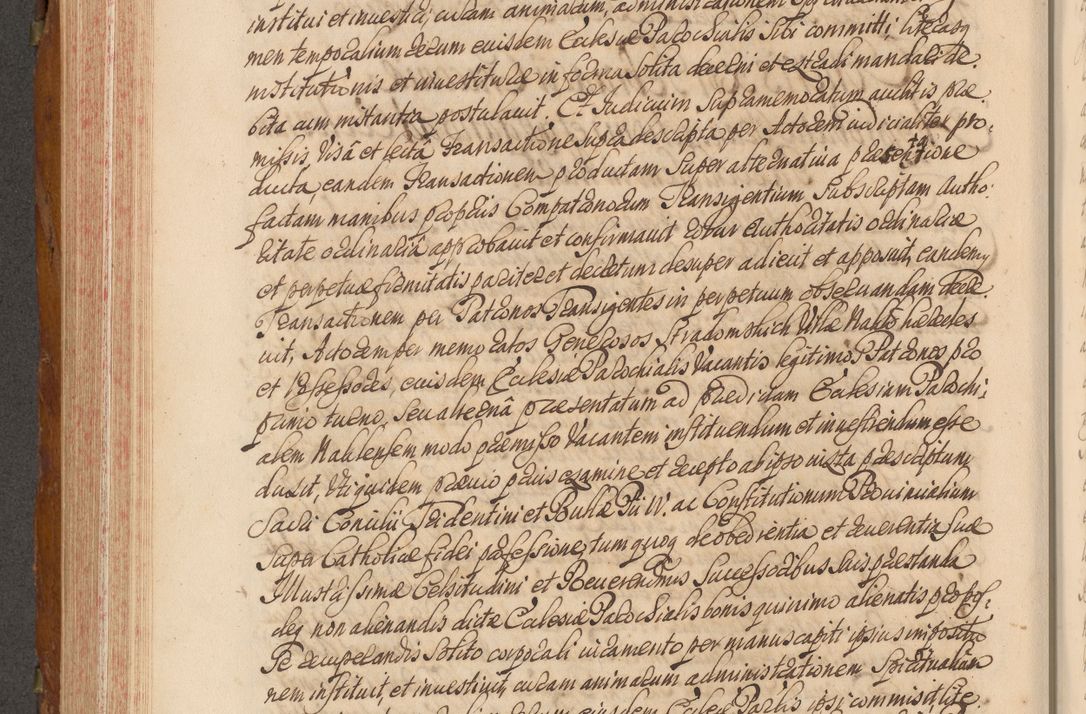 instituі et investiri, curam animarum, administrationem
men temporalium rerum eiusdem Ecclesiæ Parochialis sibi committi, literasq
institutionis et investituræ in forma solita decerni et extradi mandari de
bita cum instantia postulavit. Et Judicium supramemoratum auditis præ
missis, visâ et lectâ Transactione supradescripta per Actorem iudicialiter pro¬
ducta, eandem Transactionem productam super alternativa præsentatione
factam manibus propriis Compatronorum Transigentium subscriptam autho¬
ritate ordinariâ approbavit et confirmavit robur Authoritatis ordinariæ
et perpetuæ firmitatis pariter et decretum desuper adiecit et apposuit, eandemq
Transactionem per Patronos Transigentes in perpetuum observandam decre¬
vit, Actorem per memoratos Generosos Stradomskich Villæ hæredes
et Possessores, eiusdem Ecclesiæ Parochialis vacantis legitimos Patrones pro
primo turno, seu alternâ præsentatum ad prædictam Ecclesiam Parochi¬
alem Nahlensem modo præmisso vacantem instituendum et investiendum esse
duxit, Utiquidem prævio prius examine et recepto ab ipso iuxta præscriptum
Sacri Concilii Tridentini et Bullæ Pii IV. ac Constitutionum Provincialium
super Catholicæ fidei professione, tum quoq de obedientia et reverentia suæ
Illustrissimæ Celsitudini et Reverendimis Successoribus suis præstanda
deq non alienandis dictæ Ecclesiæ Parochialis bonis quinimo alienatis pro pos¬
se recuperandis solito corporali iuramento per manus capiti ipsius impositio
nem instituit, et investivit curam animarum administrationem Spiritualium
eiusdem Ecclæ Parlis ipsi commisit, lite